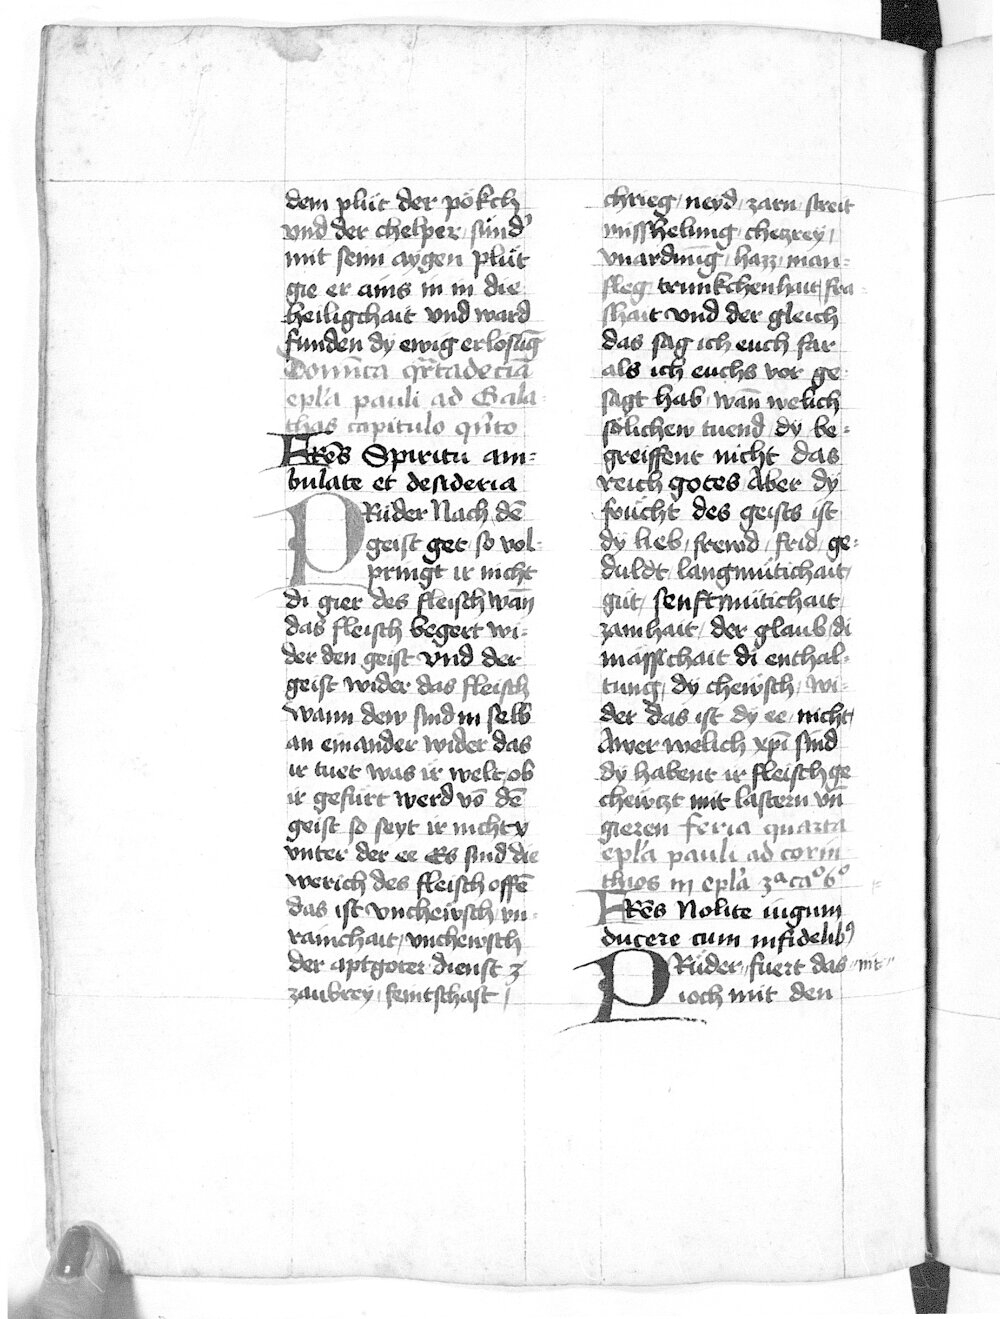 dem plüt der pökch
vnd der chelper sund'
mit seim aygen plüt
gie er ains in in die
heiligchait vnd ward
funden dy ewig erlosūg
Domīca qr̄tadecīa
epl'a pauli ad Gala-
thas capitulo qn̄to
Fres Spiritu am-
bulate et desideria
PRüder Nach dē
geist get so vol-
pringt ir nicht
di gier des fleisch wān
das fleisch begert wi-
der den geist vnd der
geist wider das fleisch
wann dew sind in selb
an ein ander wider das
ir tuet was ir welt ob
ir gefürt werd vō dē
geist so seyt ir nicht
vnter der ee Es sind die
werich des fleisch offē
das ist vncheẅsch vn-
rainchait, vnchewsch
der aptgoter dienst z
zaubrey, feintschaft,
chrieg, neyd, zarn, streit
misshelung, chetzrey,
vnardnūg, hazz, man-
sleg, trunkchenhait, fra
shait vnd der gleich
das sag ich euch far
als ich euchs vor ge-
sagt hab, wān welich
sölichew tuend dy be-
greiffent nicht das
reich gotes Aber dy
frücht des geists ist
dy lieb, frewd, frid, ge-
duldt, langmütichait,
güt, senftmütichait,
zamhait, der glaub, di
mässichait di enthal-
tung, dy chewsch, wi-
der das ist dy ee nicht,
Awer welich xp̄i sind
dy habent ir fleisch ge
chewtzt mit lastern vn̄
gieren feria quarta
epl'a pauli ad corin
thios in epl'a 3ª caº 6º
Fres Nolite iugum
ducere cum infidelib9
PRüder, fuert das "nit"
ioch mit den